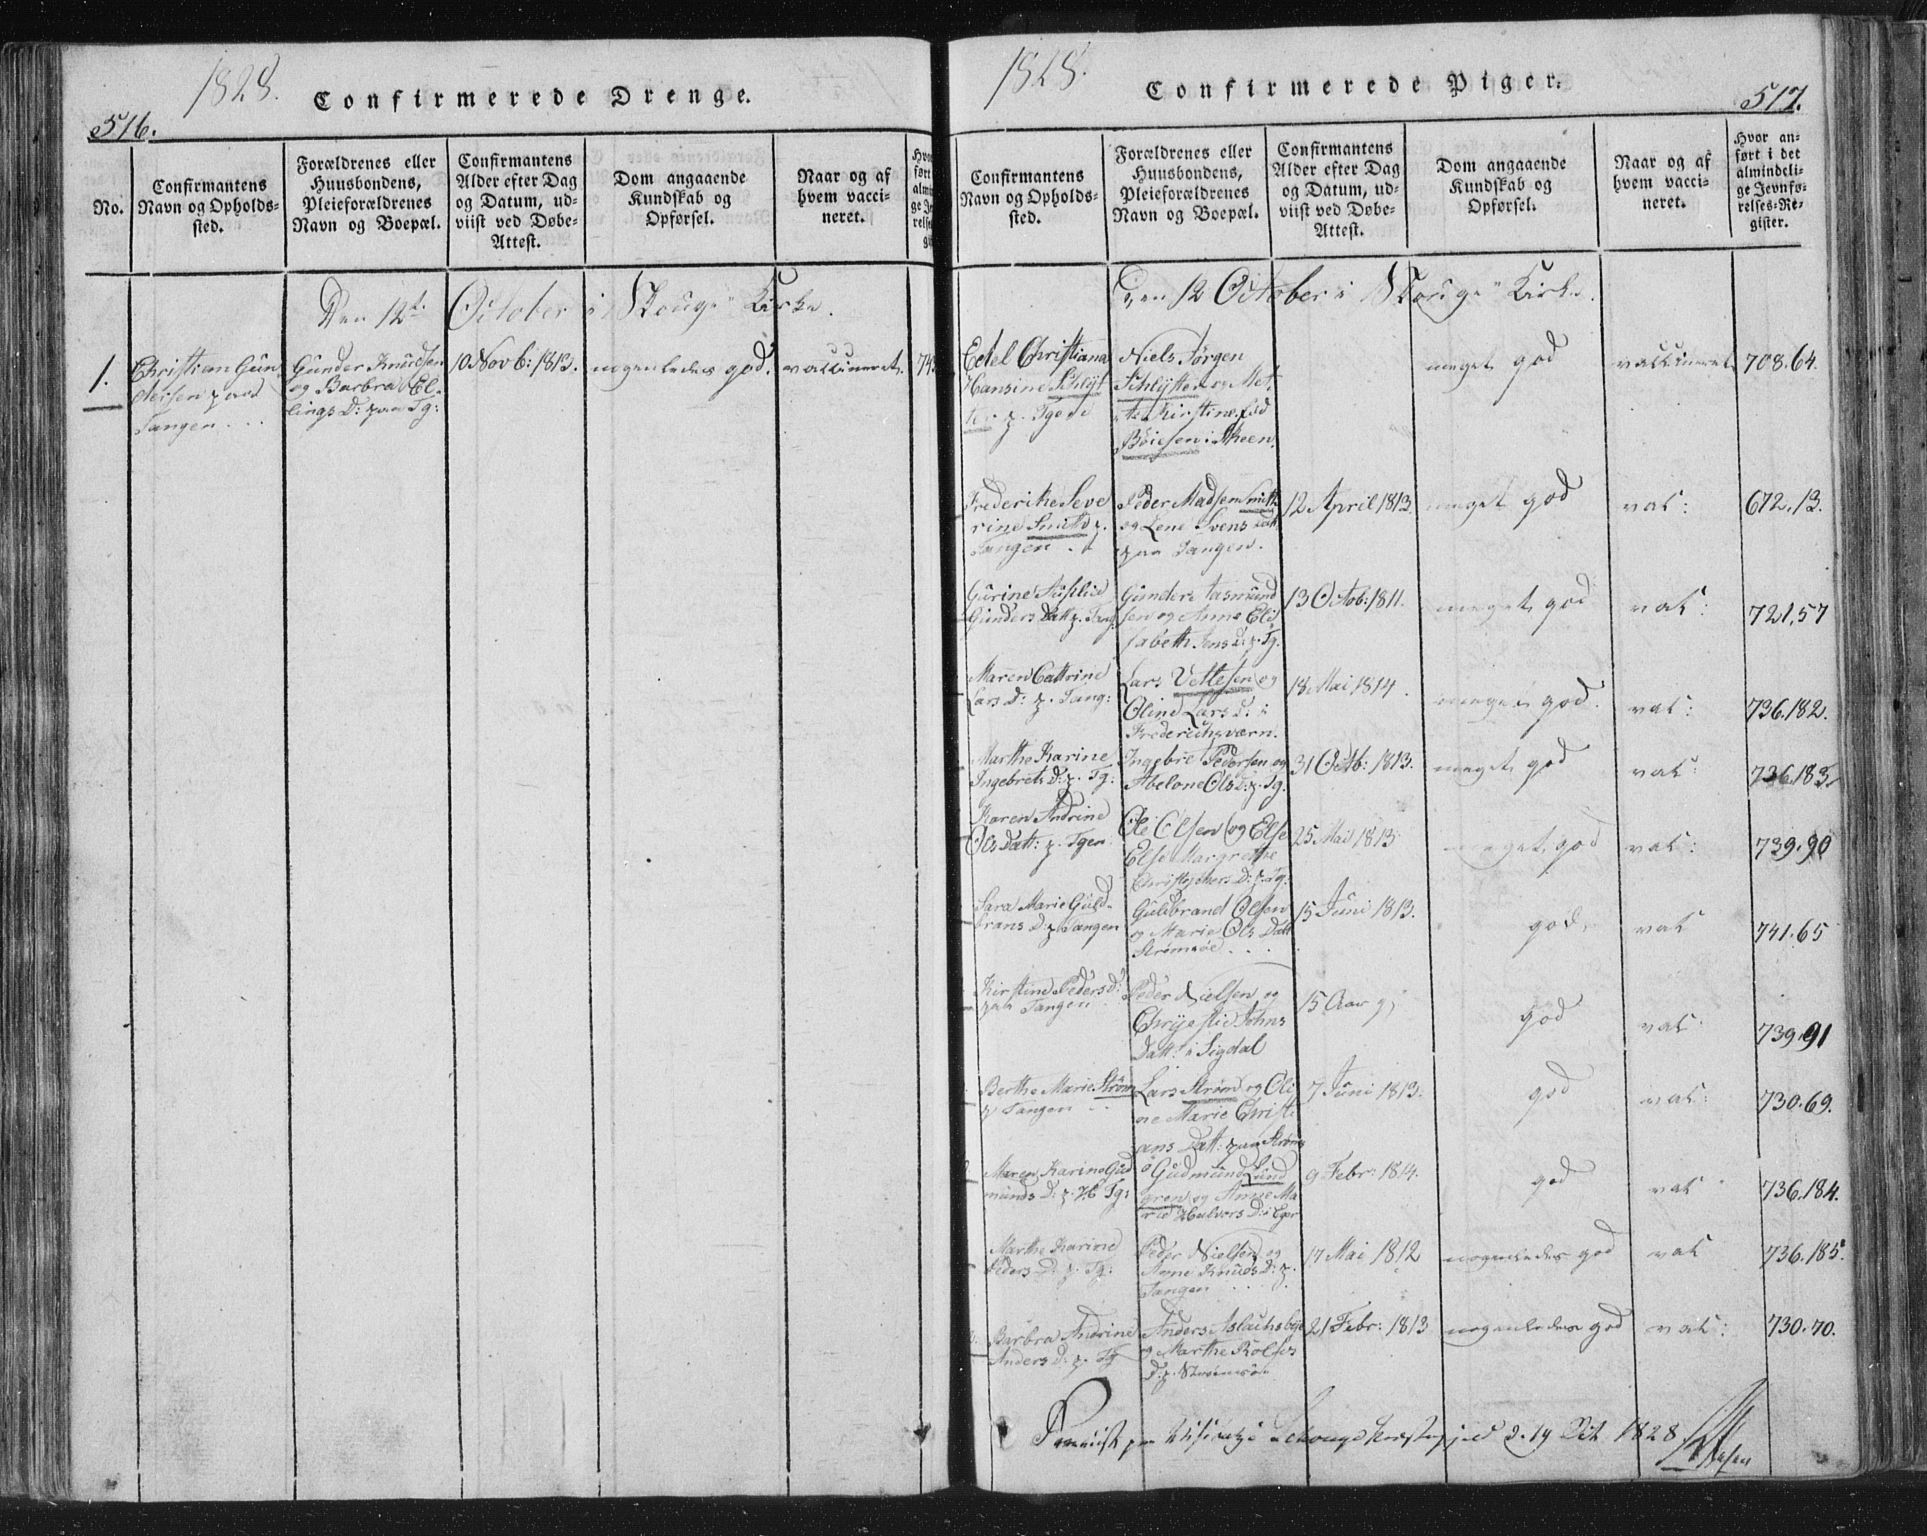 1828.
Confirmerede Drenge.
516.
No.
Confirmantens
Navn og Opholds-
sted.
Forældrenes eller
Huusbondens,
Pleieforældrenes
Navn og Boepæl.
Confirmantens
Alder efter Dag
og Datum, ud-
viist ved Døbe-
Attest.
Dom angaaende
Kundskab og
Opførsel.
Naar og af
hvem vacci-
neret.
Den 12te October i Skouge Kirke.
1.
Christian Gun
dersen paa
Tangen . . .
Gunder Knudsen
og Barbra El-
lings D: paa Tg:
10 Novb: 1813.
nogenledes god.
vaccineret.
743
1828.
Confirmerede Piger.
517.
Confirmantens
Navn og Opholds-
sted.
Forældrenes eller
Huusbondens,
Pleieforældrenes
Navn og Boepæl.
Confirmantens
Alder efter Dag
og Datum, ud-
viist ved Døbe-
Attest.
Dom angaaende
Kundskab og
Opførsel.
Naar og af
hvem vacci-
neret.
Hvor an-
ført i det
almindeli-
ge Jevnfø-
relses-Re-
gister.
Den 12 October i Skouge Kirke.
Edel Christiana
Hansine Schlyt
Niels Jørgen
Schlytter og Met
te Kirstine fød
Bøiesen i Skeen.
meget god
vaccineret
708.64.
Frederikke Seve
rine Smith p.
Tangen
Peder Madsen Smith
og Lene Svens Datt
paa Tangen.
12 April 1813.
meget god
vac:
672.13.
Gurine
Gunders Datt p. Tang
Gunder Aasmund
sen og Anne Eli
sabeth Jens D: p. Tg.
13 Octob: 1811.
meget god
vac:
721.57
Maren Cattrine
Lars D: p. Tang:
Lars Vettesen og
Oline Lars D: i
Frederichsværn.
18 Mai 1814.
meget god.
vac:
736.182.
Marthe Karine
Ingebrets D: p. Tg:
Ingebret Pedersen og
Abelone Ols D: p. Tg.
31 Octb: 1813.
meget god
vac:
736.183
Karen Andrine
Ols Datt: p. Tgen
Ole Olsen og Else
Else Margrethe
Christophers D: p. Tg:
25 Mai 1813
meget god
vac:
739.90
Sara Marie Guld-
brans D: p. Tangen
Guldbrand Olsen
og Marie Ols Datt
Strømsøe . . .
15 Juni 1813.
god.
vac
741.65
Kirstine Peders D:
paa Tangen
Peder Nielsen og
Johns
Datt: i Sigdal
15 Aar g;
god
vac:
739.91
Berthe Marie Strøm
p Tangen . .
Lars Strøm og Oli
ne Marie Christi
ans Datt: paa Strøms
ø
7 Juni 1813.
god
vac:
730.69.
Maren Karine Gud
munds D: p. Tg:
Gudmund Lund
gren og Anne Ma
rie Halvors D: i Eger
9 Febr: 1814.
god
vac
736.184.
Marthe Karine
Peders D: p. Tg:
Peder Nielsen og
Anne Knuds D: p.
Tangen . . . .
17 Mai 1812
nogenledes god
vac
736.185.
Barbra Andrine
Anders D: p. Tg
Anders Aslachsbye
og Marthe Rolfs
D: p. Strømsøe
21 Febr: 1813
nogenledes god
vac:
730.70.
1828